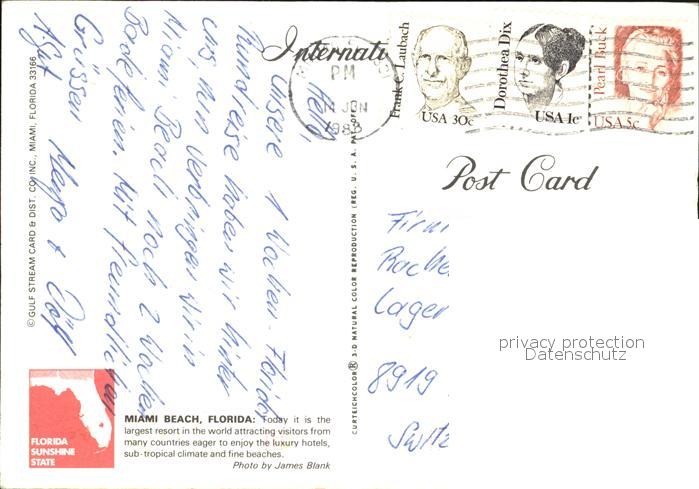 Internati
Post Card
PM
14 JUN
1983
Frank C. Laubach
USA 30c
Dorothea Dix
USA 1c
Pearl Buck
USA 5c
Hello,
Unsere 1 Wochen-Florida
Rundreise haben wir hinter
uns, nun verbringen wir in
Miami Beach noch 2 Wochen
Badeferien. Mit freundlichen
Grüssen
Firm
Lager
8919
Switz
privacy protection
Datenschutz
© GULF STREAM CARD & DIST. CO. INC., MIAMI, FLORIDA 33166
CURTEICHCOLOR® 3-D NATURAL COLOR REPRODUCTION (REG. U. S. A. PAT. OFF.)
FLORIDA
SUNSHINE
STATE
MIAMI BEACH, FLORIDA: Today it is the
largest resort in the world attracting visitors from
many countries eager to enjoy the luxury hotels,
sub-tropical climate and fine beaches.
Photo by James Blank